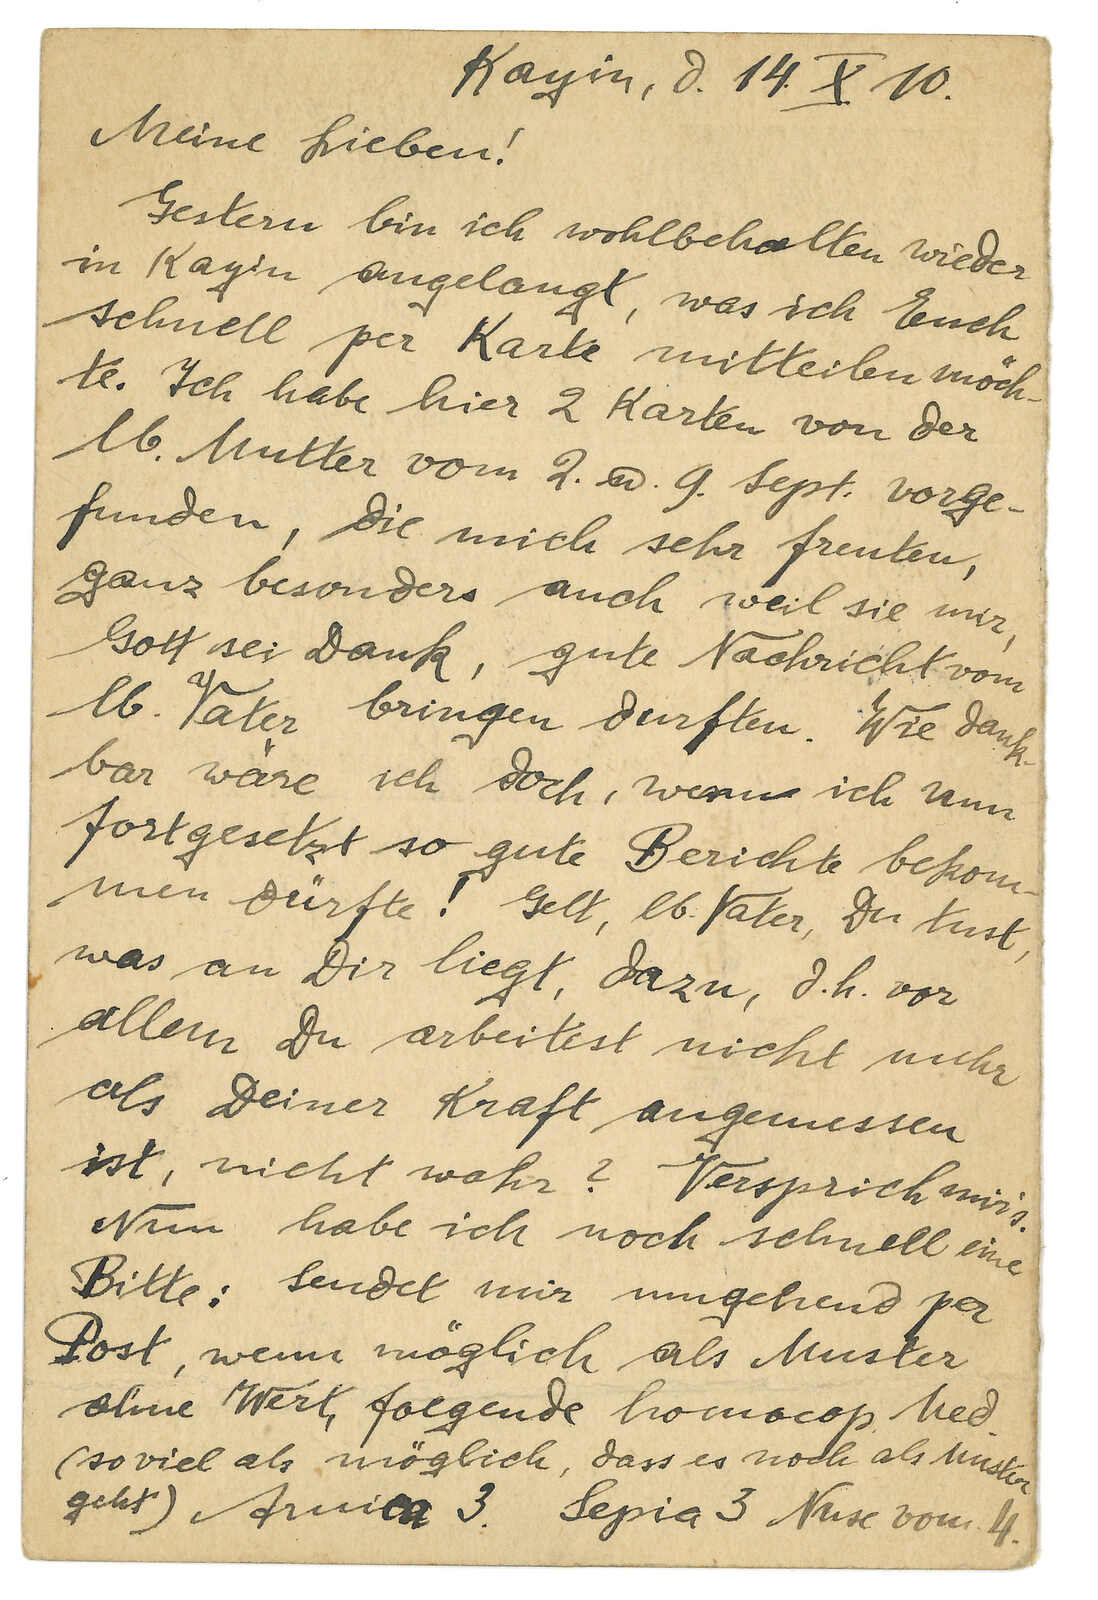 Kayin, d. 14. X. 10.
Meine Lieben!
Gestern bin ich wohlbehalten wieder
in Kayin angelangt, was ich Euch
schnell per Karte mitteilen möch-
te. Ich habe hier 2 Karten von der
lb. Mutter vom 2. u. 9. Sept. vorge-
funden, die mich sehr freuten,
ganz besonders auch weil sie mir,
Gott sei Dank, gute Nachricht vom
lb. Vater bringen durften. Wie dank-
bar wäre ich doch, wenn ich nun
fortgesetzt so gute Berichte bekom-
men dürfte! Gelt, lb. Vater, Du tust,
was an Dir liegt, dazu, d.h. vor
allem Du arbeitest nicht mehr
als Deiner Kraft angemessen
ist, nicht wahr? Versprich mirs.
Nun habe ich noch schnell eine
Bitte: Sendet mir umgehend per
Post, wenn möglich als Muster
ohne Wert, folgende homoeop. Med.
(soviel als möglich, dass es noch als Muster
geht) Arnica 3. Sepia 3 vom 4.